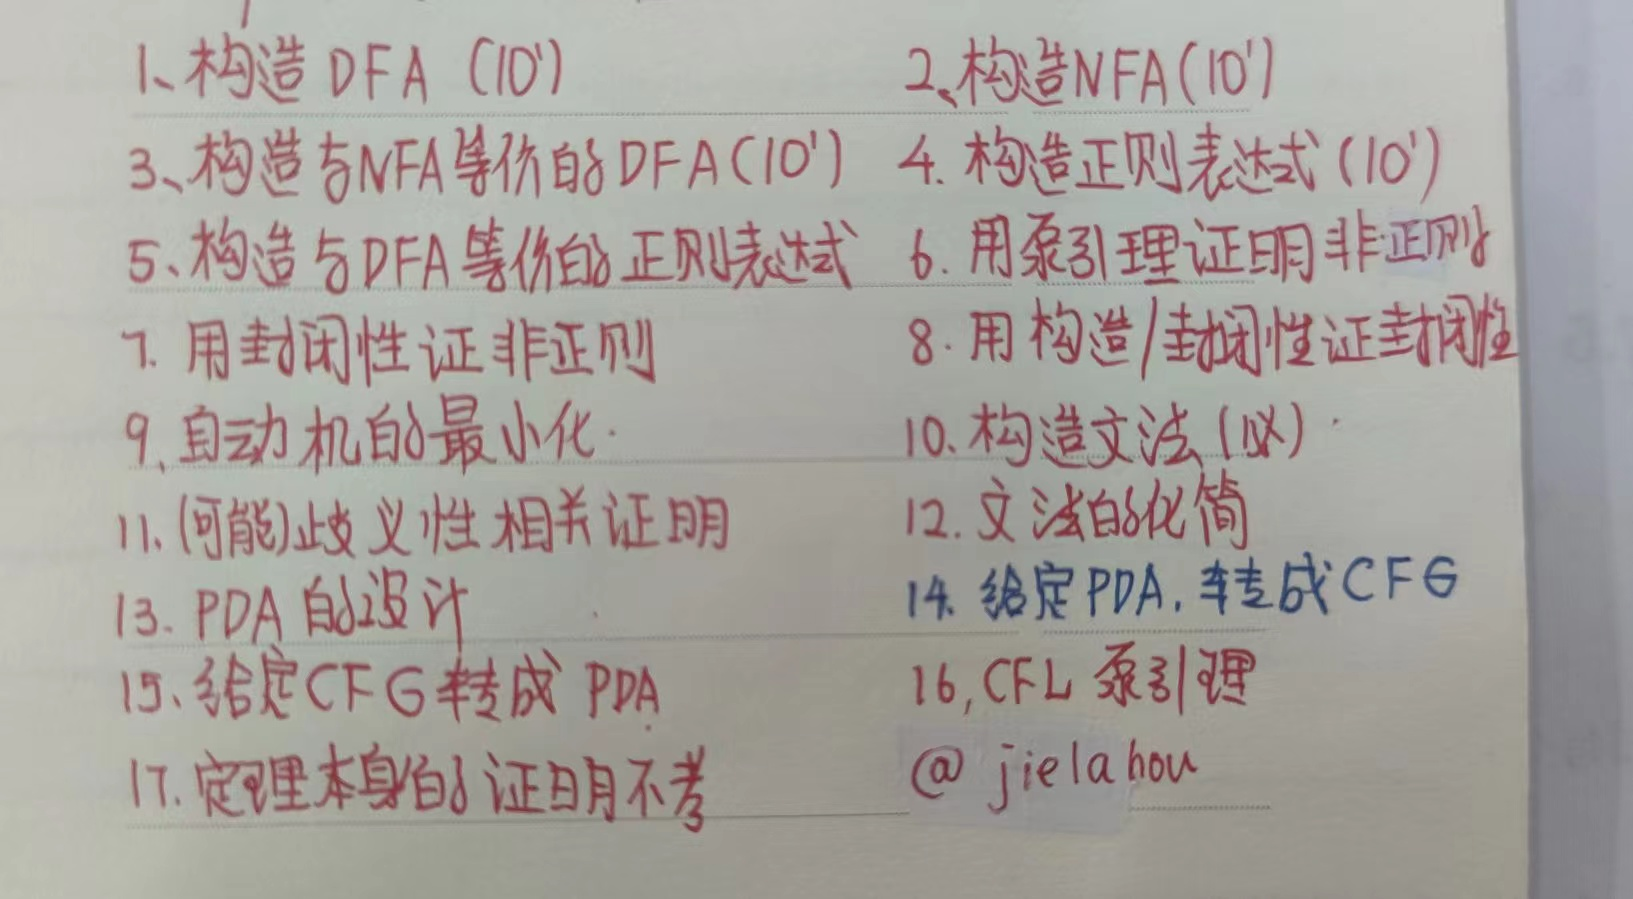 1、构造DFA (10')
2、构造NFA(10')
3、构造与NFA等价的DFA(10')
4. 构造正则表达式(10')
5、构造与DFA等价的正则表达式
6. 用泵引理证明非正则
7. 用封闭性证非正则
8. 用构造/封闭性证封闭性
9、自动机的最小化.
10. 构造文法(必).
11、(可能)歧义性相关证明
12. 文法的化简
13. PDA的设计
14. 给定PDA, 转成CFG
15、给定CFG转成PDA
16, CFL 泵引理
17. 定理本身的证明不考
@jielahou